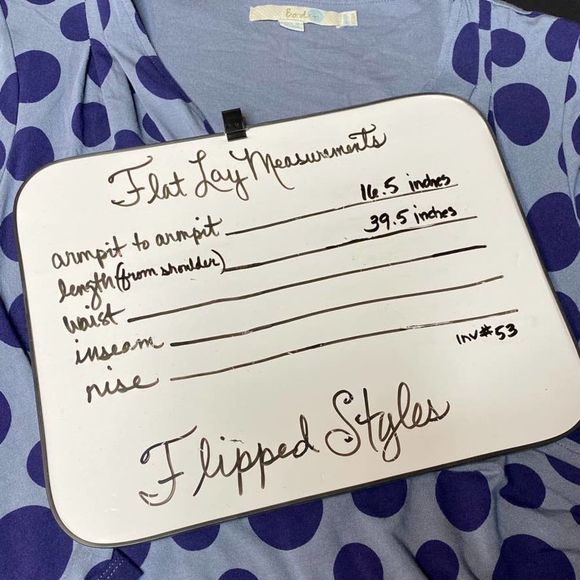 Boden
Flat Lay Measurements
armpit to armpit 16.5 inches
length (from shoulder) 39.5 inches
waist
inseam
rise
inv#53
Flipped Styles